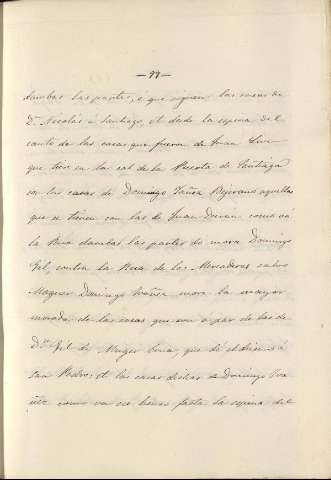 —77—
dambas las partes, é que siguen las casas de
Dn. Nicolás á Santiago, et desde la esquina del
canto de las casas que fueron de Juan
que son en la cal de la Puerta de Santiago
con las casas de Domingo Yañez Bejerano aquellas
que se tienen con las de Juan Duran como va
la Rua dambas las partes do mora Domingo
Gil, contra la Rua de los Mercaderos salvo
Maguer Domingo Ivañez mora la mayor
morada, de las casas que son á par de las de
Dn. Gil de Muger buena, que dá el diezmo á
San Pedro; et las casas dichas de Domingo Iva
ñez como va no hemos fasta la esquina del